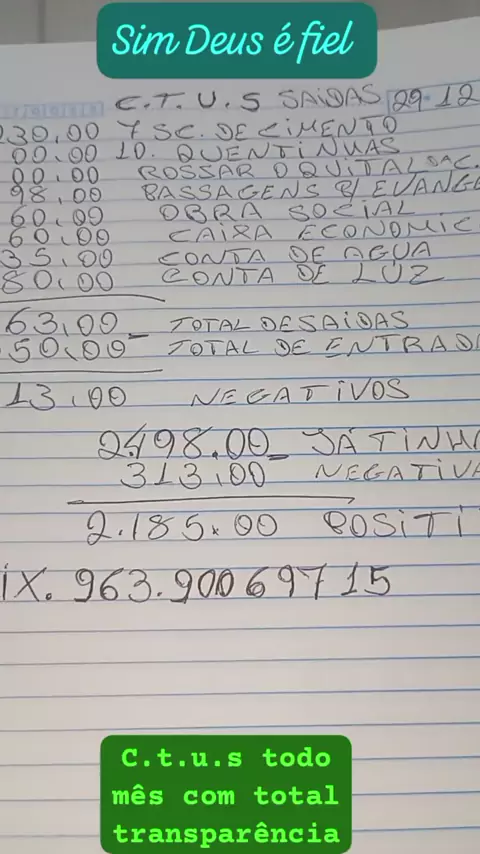 Sim Deus é fiel
C.T.U.S SAIDAS 29-12
230,00 7 SC. DE CIMENTO
00,00 10. QUENTINHAS
00,00 ROSSAR O QUITAL DA C.
98,00 PASSAGENS P/ EVANGE
60,00 OBRA SOCIAL
60,00 CAIXA ECONOMIC
35,00 CONTA DE AGUA
80,00 CONTA DE LUZ
63,00 - TOTAL DE SAIDAS
50,00 TOTAL DE ENTRADA
13,00 NEGATIVOS
2.498.00 - JÁ TINHA
313,00 NEGATIVA
2.185,00 POSITI
IX. 963.900697 15
C.t.u.s todo
mês com total
transparência